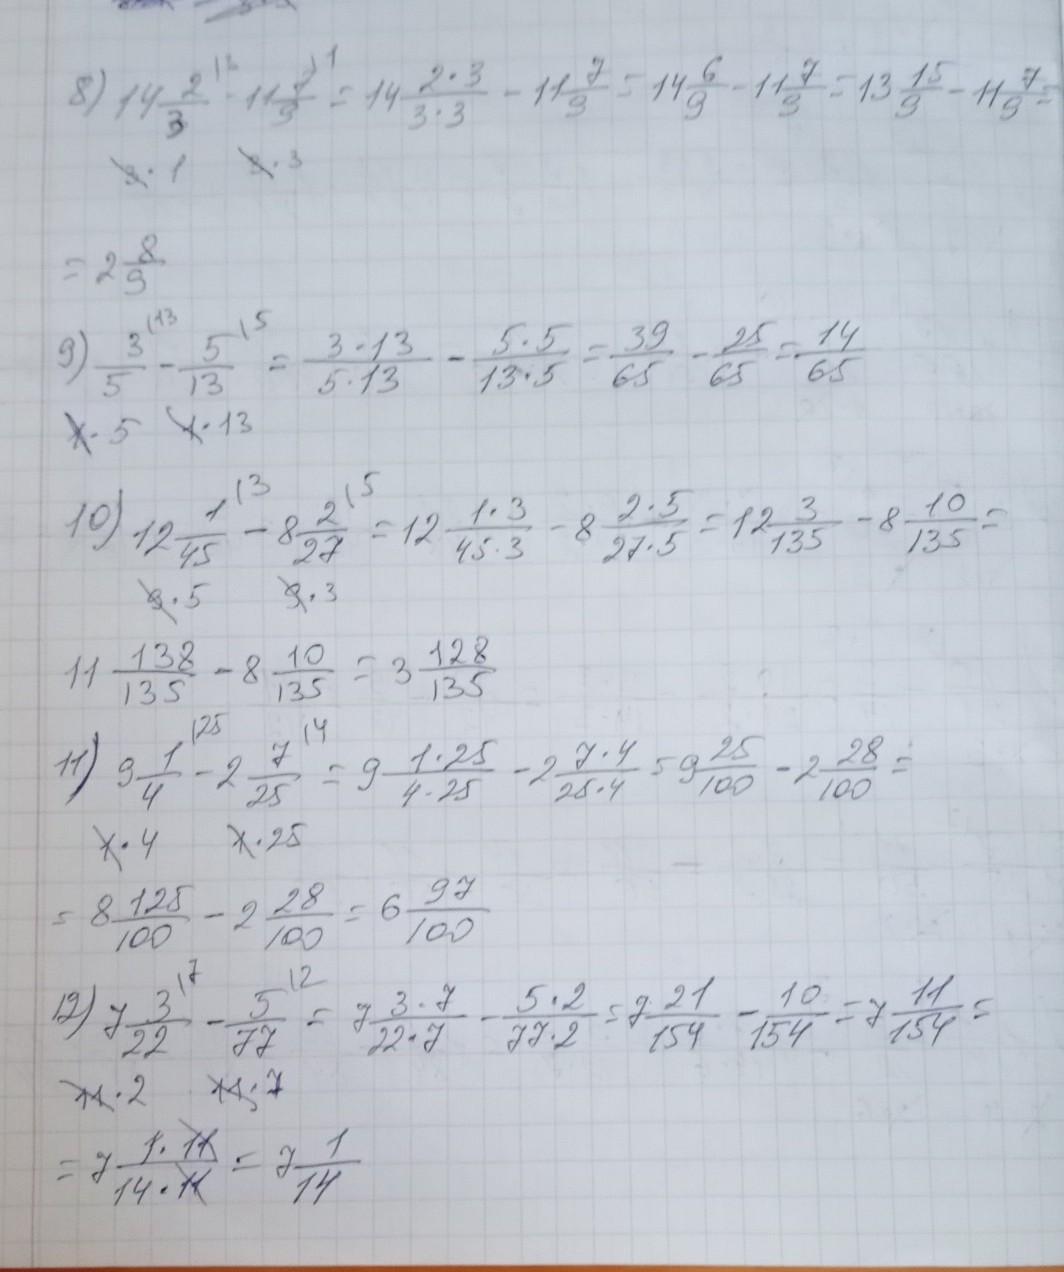 8) 14 2/3 \3 - 11 7/9 \1 = 14 2·3/3·3 - 11 7/9 = 14 6/9 - 11 7/9 = 13 15/9 - 11 7/9 =
3·1 3·3
= 2 8/9
9) 3/5 \13 - 5/13 \5 = 3·13/5·13 - 5·5/13·5 = 39/65 - 25/65 = 14/65
1·5 1·13
10) 12 1/45 \3 - 8 2/27 \5 = 12 1·3/45·3 - 8 2·5/27·5 = 12 3/135 - 8 10/135 =
9·5 9·3
11 138/135 - 8 10/135 = 3 128/135
11) 9 1/4 \25 - 2 7/25 \4 = 9 1·25/4·25 - 2 7·4/25·4 = 9 25/100 - 2 28/100 =
1·4 1·25
= 8 125/100 - 2 28/100 = 6 97/100
12) 7 3/22 \7 - 5/77 \2 = 7 3·7/22·7 - 5·2/77·2 = 7 21/154 - 10/154 = 7 11/154 =
11·2 11·7
= 7 1·11/14·11 = 7 1/14